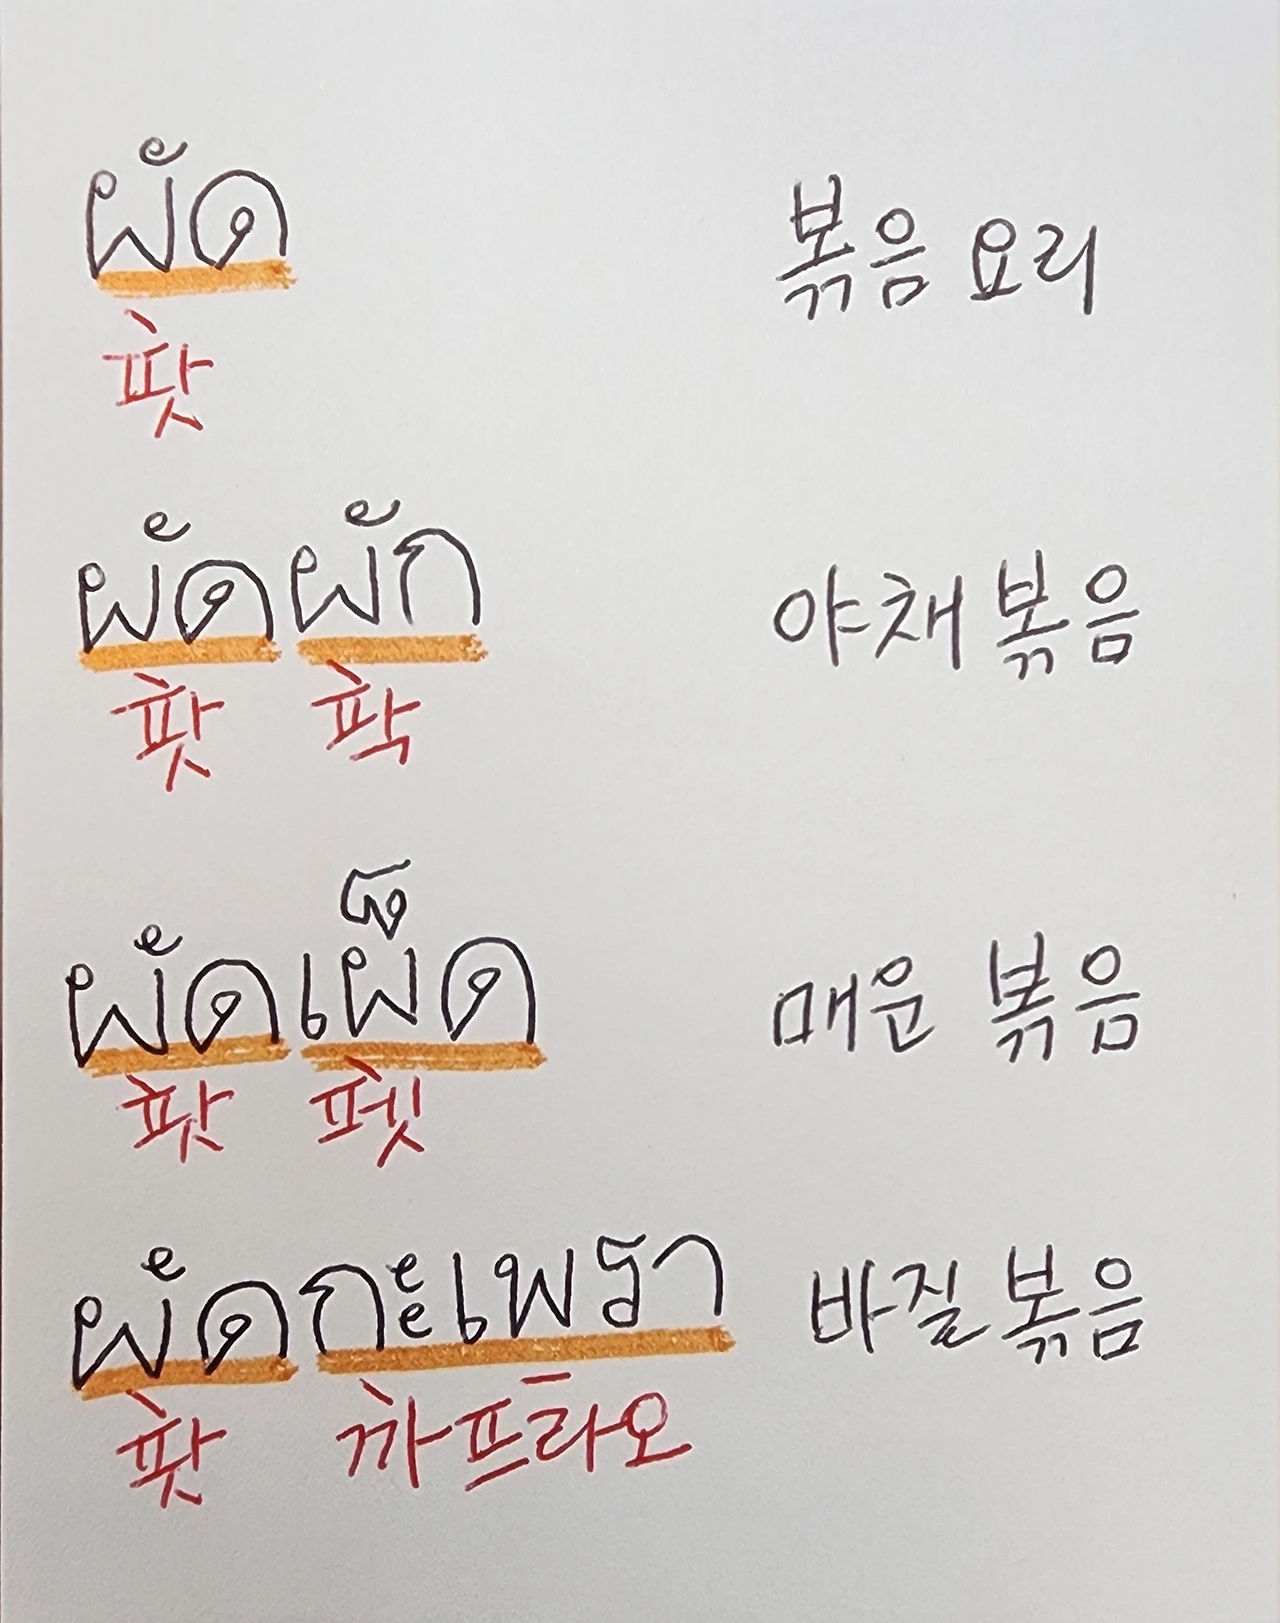 ผัด 볶음 요리
팟
ผัดผัก 야채 볶음
팟 팍
ผัดเผ็ด 매운 볶음
팟 펫
ผัดกะเพรา 바질 볶음
팟 까프라오